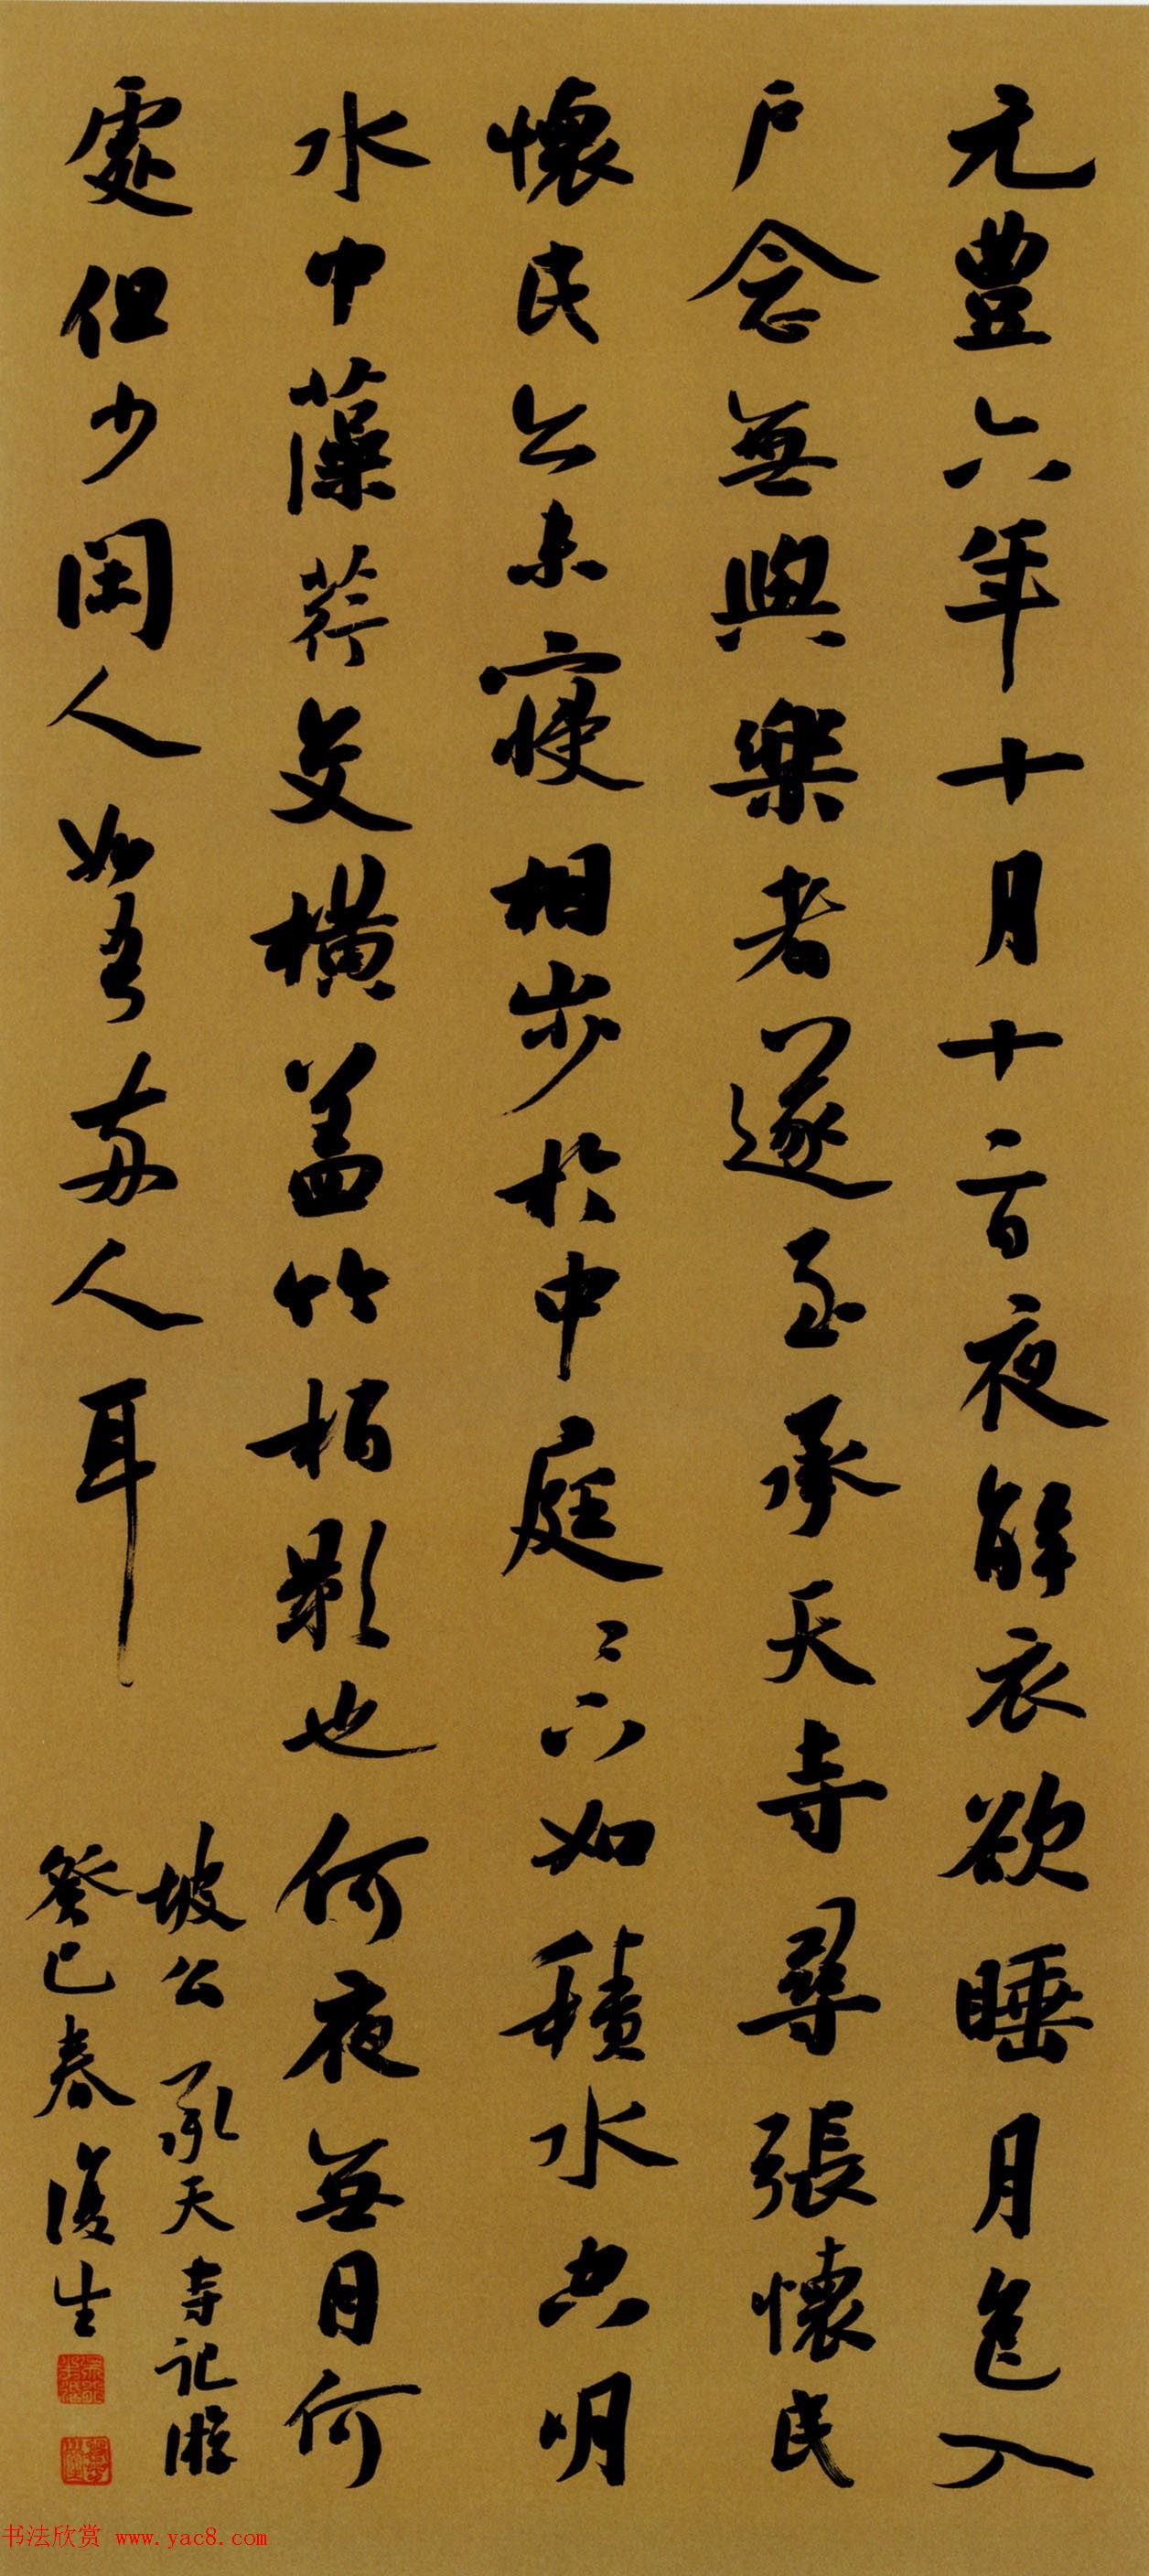 元豐六年十月十二日夜解衣欲睡月色入
户念無與樂者遂至承天寺尋張懷民
懷民亦未寢相步於中庭〻下如積水空明
水中藻荇交橫蓋竹柏影也何夜無月何
處但少閑人如吾兩人耳
坡公承天寺記游
癸巳春復生
书法欣赏 www.yac8.com